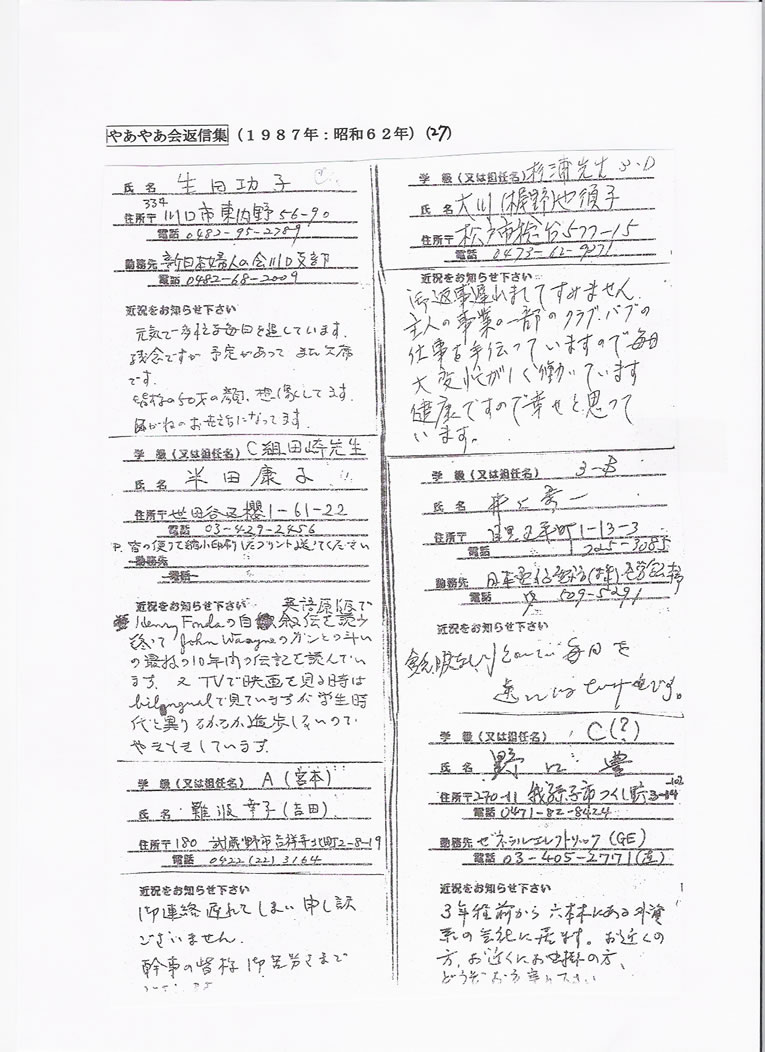 やあやあ会返信集 (1987年:昭和62年) (27)
氏 名 生田功子
334
住所〒 川口市東内野56-90
電話 0482-95-2789
勤務先 新日本婦人の会川口支部
電話 0482-68-2009
近況をお知らせ下さい
元気で 毎日を過しています.
残念ですが 予定があって また欠席
です.
皆様の50才の顔, 想像してます.
めがねのお世話になってます.
学 級 (又は担任名) C組田崎先生
氏 名 半田康子
住所〒 世田谷区櫻1-61-22
電話 03-429-2456
P. 皆の便りを縮小印刷したプリント送ってください
勤務先
電話
近況をお知らせ下さい 英語原版で
Henry Fondaの自叙伝を読み
終って John Wayneのガンとの斗い
の最後の10年間の伝記を読んでい
ます. 又 TVで映画を見る時は
bilingualで見ていますが学生時
代と異り なかなか進歩しないので
やきもきしています.
学 級 (又は担任名) A (宮本)
氏 名 難波幸子(吉田)
住所〒180 武蔵野市吉祥寺北町2-8-19
電話 0422 (22) 3164
近況をお知らせ下さい
御連絡遅れてしまい申し訳
ございません.
幹事の皆様 御苦労さまで
学 級 (又は担任名) 杉浦先生 3-D
氏 名 大川(梶野)也須子
住所〒 松戸市松飛台577-15
電話 0473-62-9271
近況をお知らせ下さい
御返事遅れましてすみません.
主人の事業の一部のクラブ・パブの
仕事を手伝っていますので毎日
大変忙がしく働いています
健康ですので幸せと思って
います。
学 級 (又は担任名) 3-B
氏 名 井上 一
住所〒 目黒区平町1-13-3
電話 725-3085
勤務先 日本電信電話(株)
電話 509-5291
近況をお知らせ下さい
毎日を
学 級 (又は担任名) C(?)
氏 名 野口 豊
住所〒270-11 我孫子市つくし野3-14-102
電話 0471-82-8424
勤務先 ゼネラルエレクトリック (GE)
電話 03-405-2771(直)
近況をお知らせ下さい
3年程前から六本木にある外資
系の会社に居ます。お近くの
方、お近くにお出掛の方、
どうぞお立寄り下さい